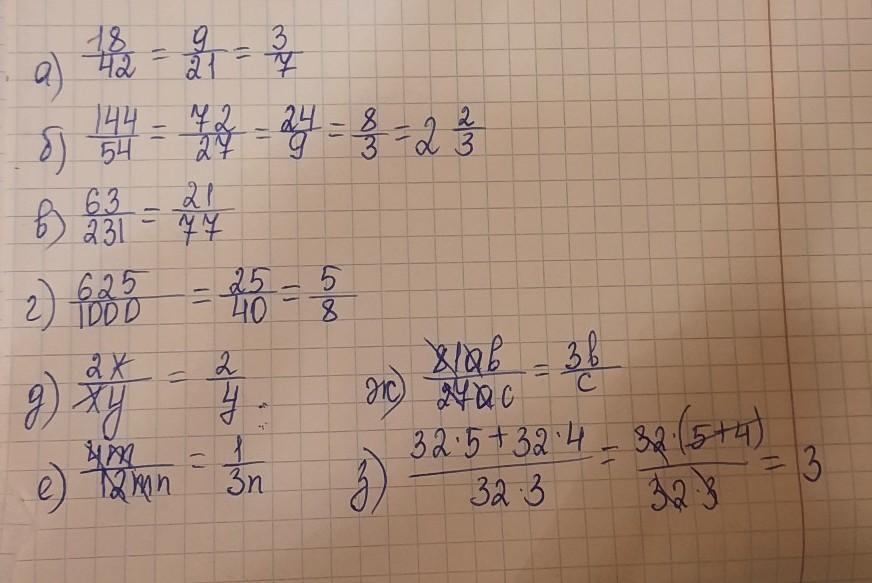 а) 18/42 = 9/21 = 3/7
б) 144/54 = 72/27 = 24/9 = 8/3 = 2 2/3
в) 63/231 = 21/77
г) 625/1000 = 25/40 = 5/8
д) 2x/xy = 2/y
ж) 81ab/27ac = 3b/c
е) 4m/12mn = 1/3n
з) 32·5+32·4/32·3 = 32·(5+4)/32·3 = 3